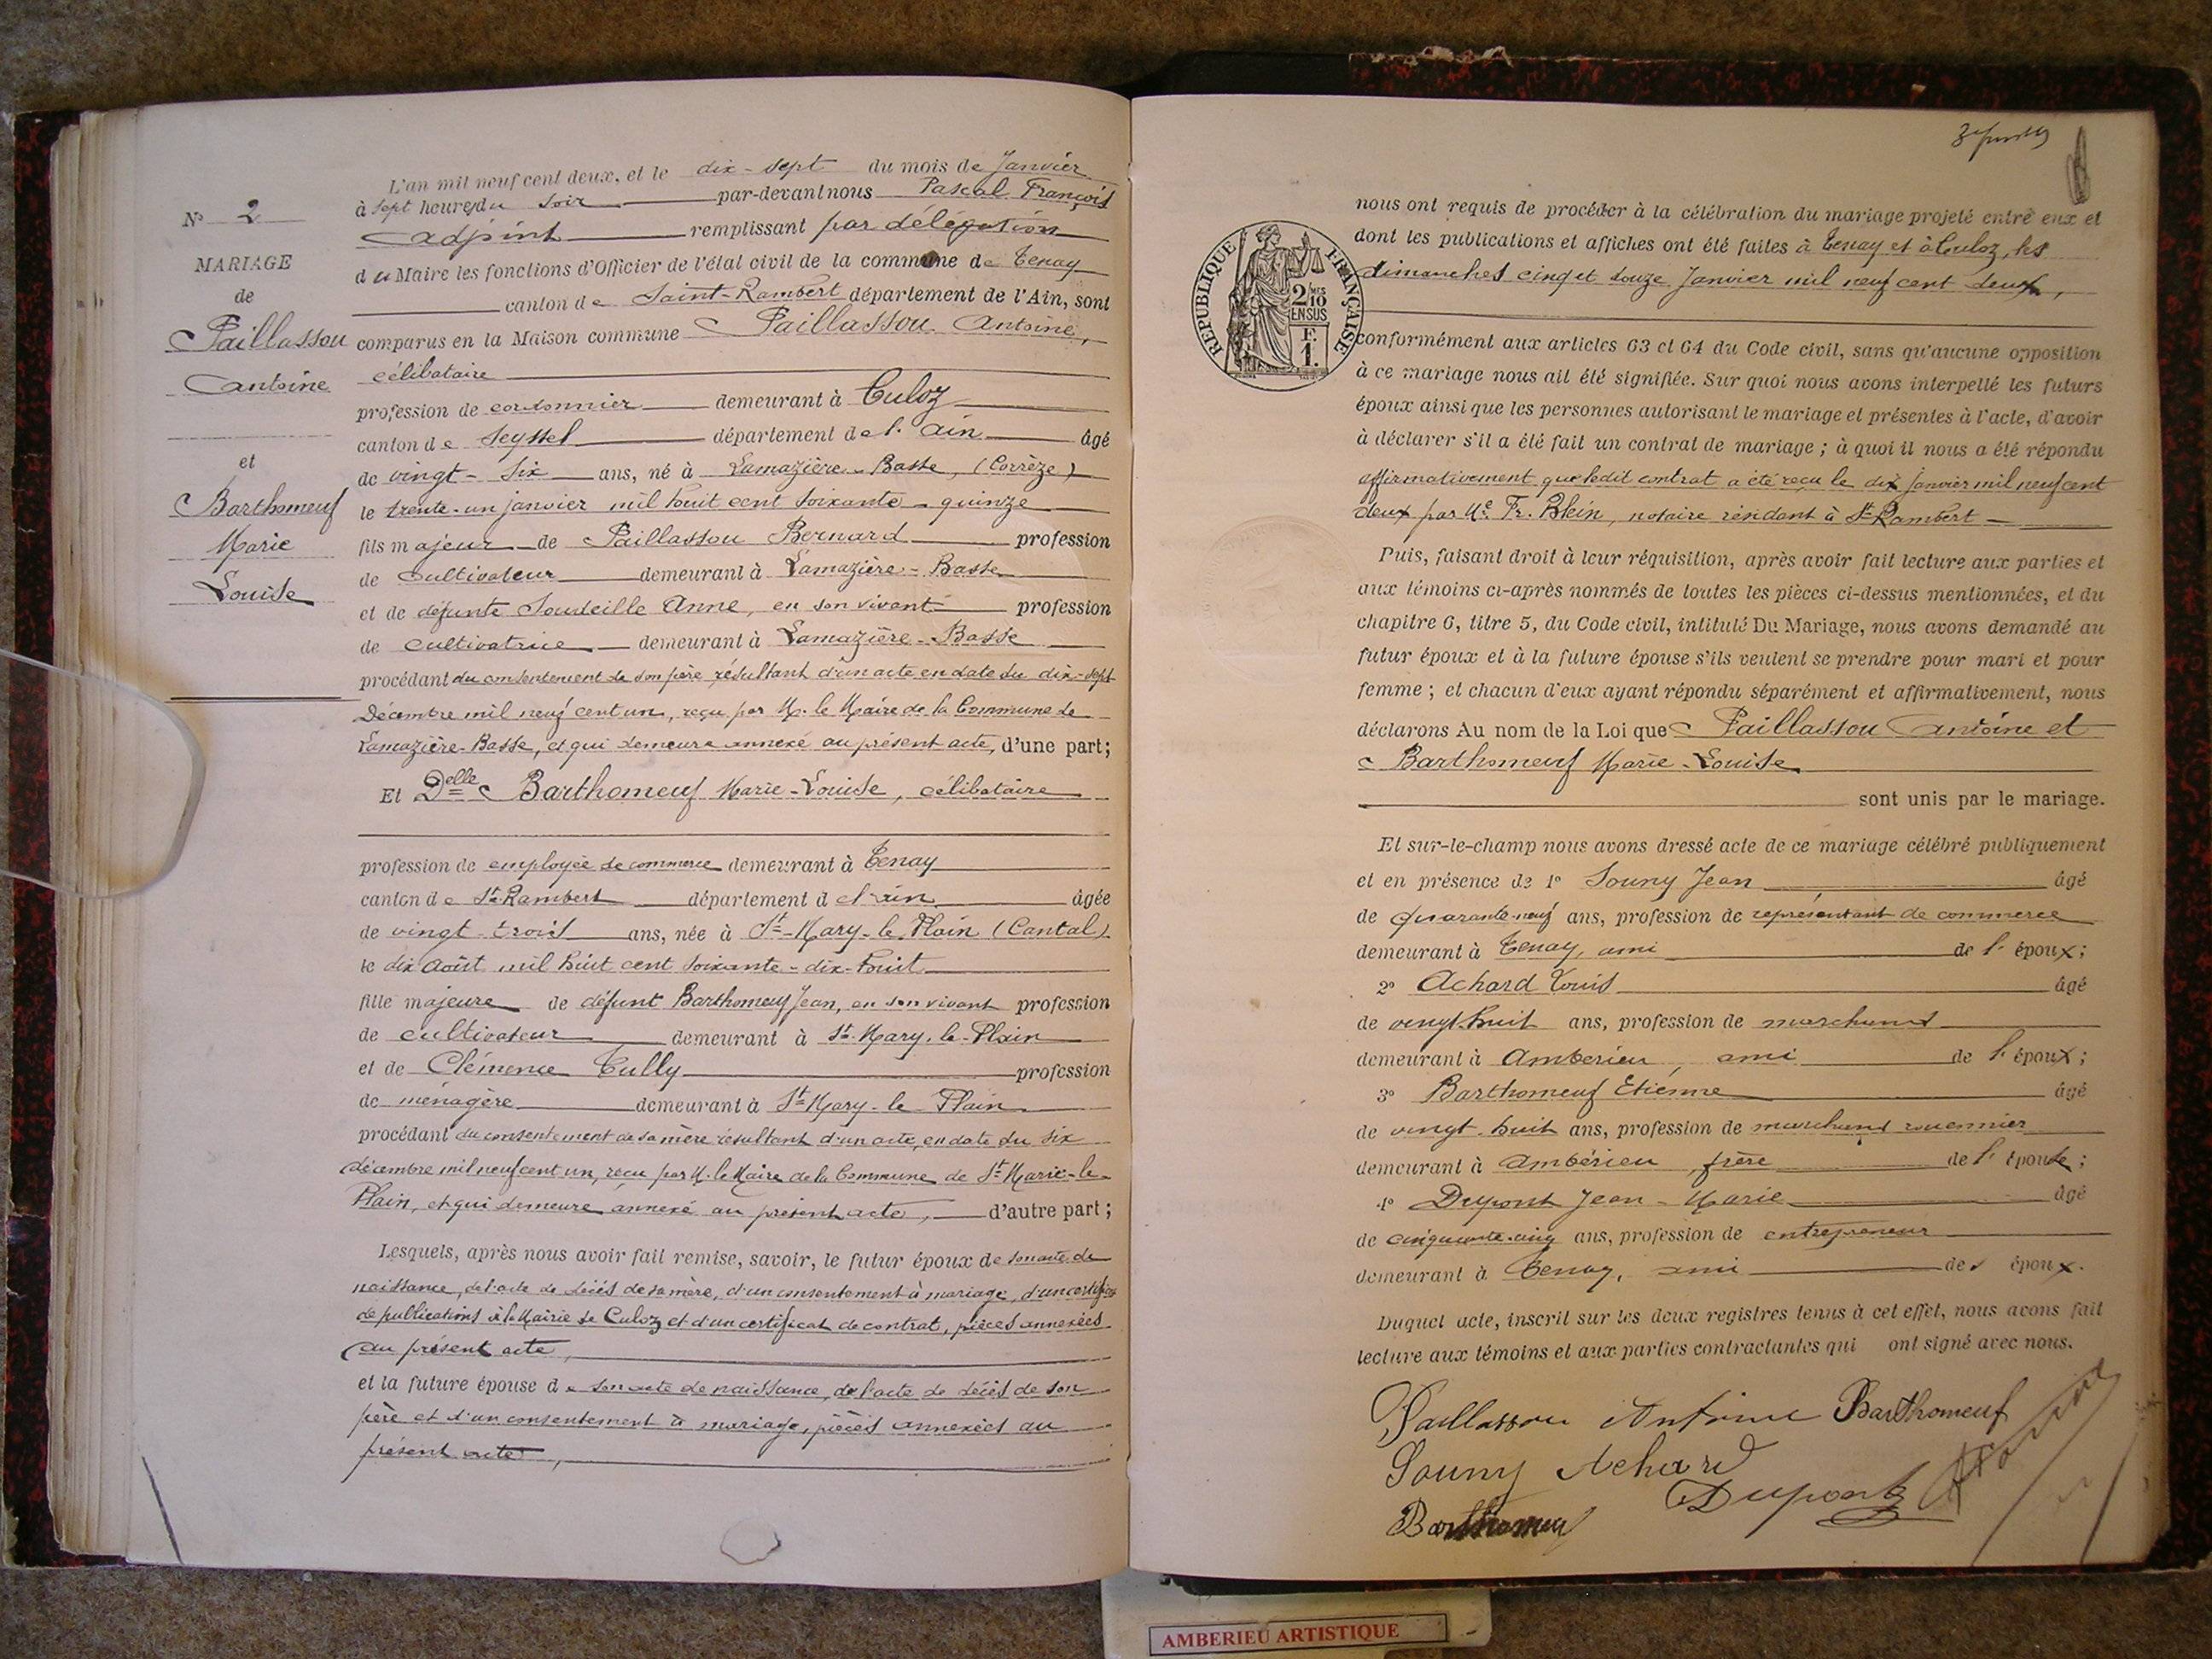 L'an mil neuf cent deux, et le dix-sept du mois de Janvier
à sept heures du soir par-devant nous Pascal François
adjoint remplissant par délégation
du Maire les fonctions d'Officier de l'état civil de la commune de Tenay
canton de Saint-Rambert département de l'Ain, sont
comparus en la Maison commune Paillassou Antoine,
célibataire
profession de cordonnier demeurant à Culoz
canton de Seyssel département de l'Ain âgé
de vingt-six ans, né à Lamazière-Basse, (Corrèze)
le trente-un janvier mil huit cent soixante-quinze
fils majeur de Paillassou Bernard profession
de cultivateur demeurant à Lamazière-Basse
et de défunte Soudeille Anne, en son vivant profession
de cultivatrice demeurant à Lamazière-Basse
procédant du consentement de son père résultant d'un acte en date du dix-sept
Décembre mil neuf cent un, reçu par M. le Maire de la Commune de
Lamazière-Basse, et qui demeure annexé au présent acte, d'une part;
Et Delle Barthomeuf Marie-Louise, célibataire
profession de employée de commerce demeurant à Tenay
canton de St-Rambert département de l'Ain âgée
de vingt-trois ans, née à St-Mary-le-Plain (Cantal)
le dix Août mil huit cent soixante-dix-huit
fille majeure de défunt Barthomeuf Jean, en son vivant profession
de cultivateur demeurant à St-Mary-le-Plain
et de Clémence Tully profession
de ménagère demeurant à St-Mary-le-Plain
procédant du consentement de sa mère résultant d'un acte, en date du six
décembre mil neuf cent un, reçu par M. le Maire de la Commune de St-Marie-le-
Plain, et qui demeure annexé au présent acte, d'autre part;
Lesquels, après nous avoir fait remise, savoir, le futur époux de son acte de
naissance, de l'acte de décès de sa mère, d'un consentement à mariage, d'un certificat
de publications à la Mairie de Culoz et d'un certificat de contrat, pièces annexées
au présent acte,
et la future épouse de son acte de naissance, de l'acte de décès de son
père et d'un consentement à mariage, pièces annexées au
présent acte,
N° 2
MARIAGE
de
Paillassou
Antoine
et
Barthomeuf
Marie
Louise
nous ont requis de procéder à la célébration du mariage projeté entre eux et
dont les publications et affiches ont été faites à Tenay et à Culoz, les
dimanches cinq et douze Janvier mil neuf cent deux,
RÉPUBLIQUE FRANÇAISE
2 MES
10
EN SUS
F.
1.
conformément aux articles 63 et 64 du Code civil, sans qu'aucune opposition
à ce mariage nous ait été signifiée. Sur quoi nous avons interpellé les futurs
époux ainsi que les personnes autorisant le mariage et présentes à l'acte, d'avoir
à déclarer s'il a été fait un contrat de mariage; à quoi il nous a été répondu
affirmativement que ledit contrat a été reçu le dix janvier mil neuf cent
deux par Me Fr. Blein, notaire résidant à St Rambert
Puis, faisant droit à leur réquisition, après avoir fait lecture aux parties et
aux témoins ci-après nommés de toutes les pièces ci-dessus mentionnées, et du
chapitre 6, titre 5, du Code civil, intitulé Du Mariage, nous avons demandé au
futur époux et à la future épouse s'ils veulent se prendre pour mari et pour
femme; et chacun d'eux ayant répondu séparément et affirmativement, nous
déclarons Au nom de la Loi que Paillassou Antoine et
Barthomeuf Marie-Louise
sont unis par le mariage.
Et sur-le-champ nous avons dressé acte de ce mariage célébré publiquement
et en présence de 1° Souny Jean âgé
de quarante-neuf ans, profession de représentant de commerce
demeurant à Tenay, ami de l'époux;
2° Achard Louis âgé
de vingt-huit ans, profession de marchand
demeurant à Ambérieu, ami de l'époux;
3° Barthomeuf Etienne âgé
de vingt-huit ans, profession de marchand rouennier
demeurant à Ambérieu, frère de l'épouse;
4° Dupont Jean-Marie âgé
de cinquante-cinq ans, profession de entrepreneur
demeurant à Tenay, ami des époux.
Duquel acte, inscrit sur les deux registres tenus à cet effet, nous avons fait
lecture aux témoins et aux parties contractantes qui ont signé avec nous.
Paillassou Antoine Barthomeuf
Souny Achard
Dupont
Barthomeuf
AMBERIEU ARTISTIQUE